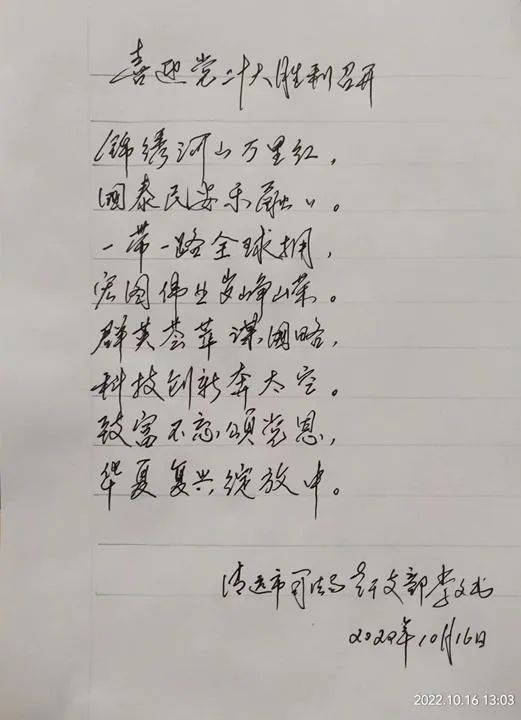 喜迎党二十大胜利召开
锦绣河山万里红，
国泰民安乐融〃。
一带一路全球拥，
宏图伟业岁峥嵘。
群英荟萃谋国略，
科技创新奔太空。
致富不忘颂党恩，
华夏复兴绽放中。
清远市司法局老干支部李文
2022年10月16日
2022.10.16 13:03